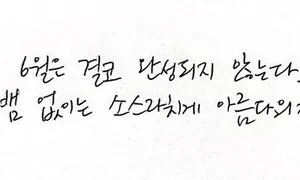 6월은 결코 완성되지 않는다.
뱀 없이는 소스라치게 아름다워